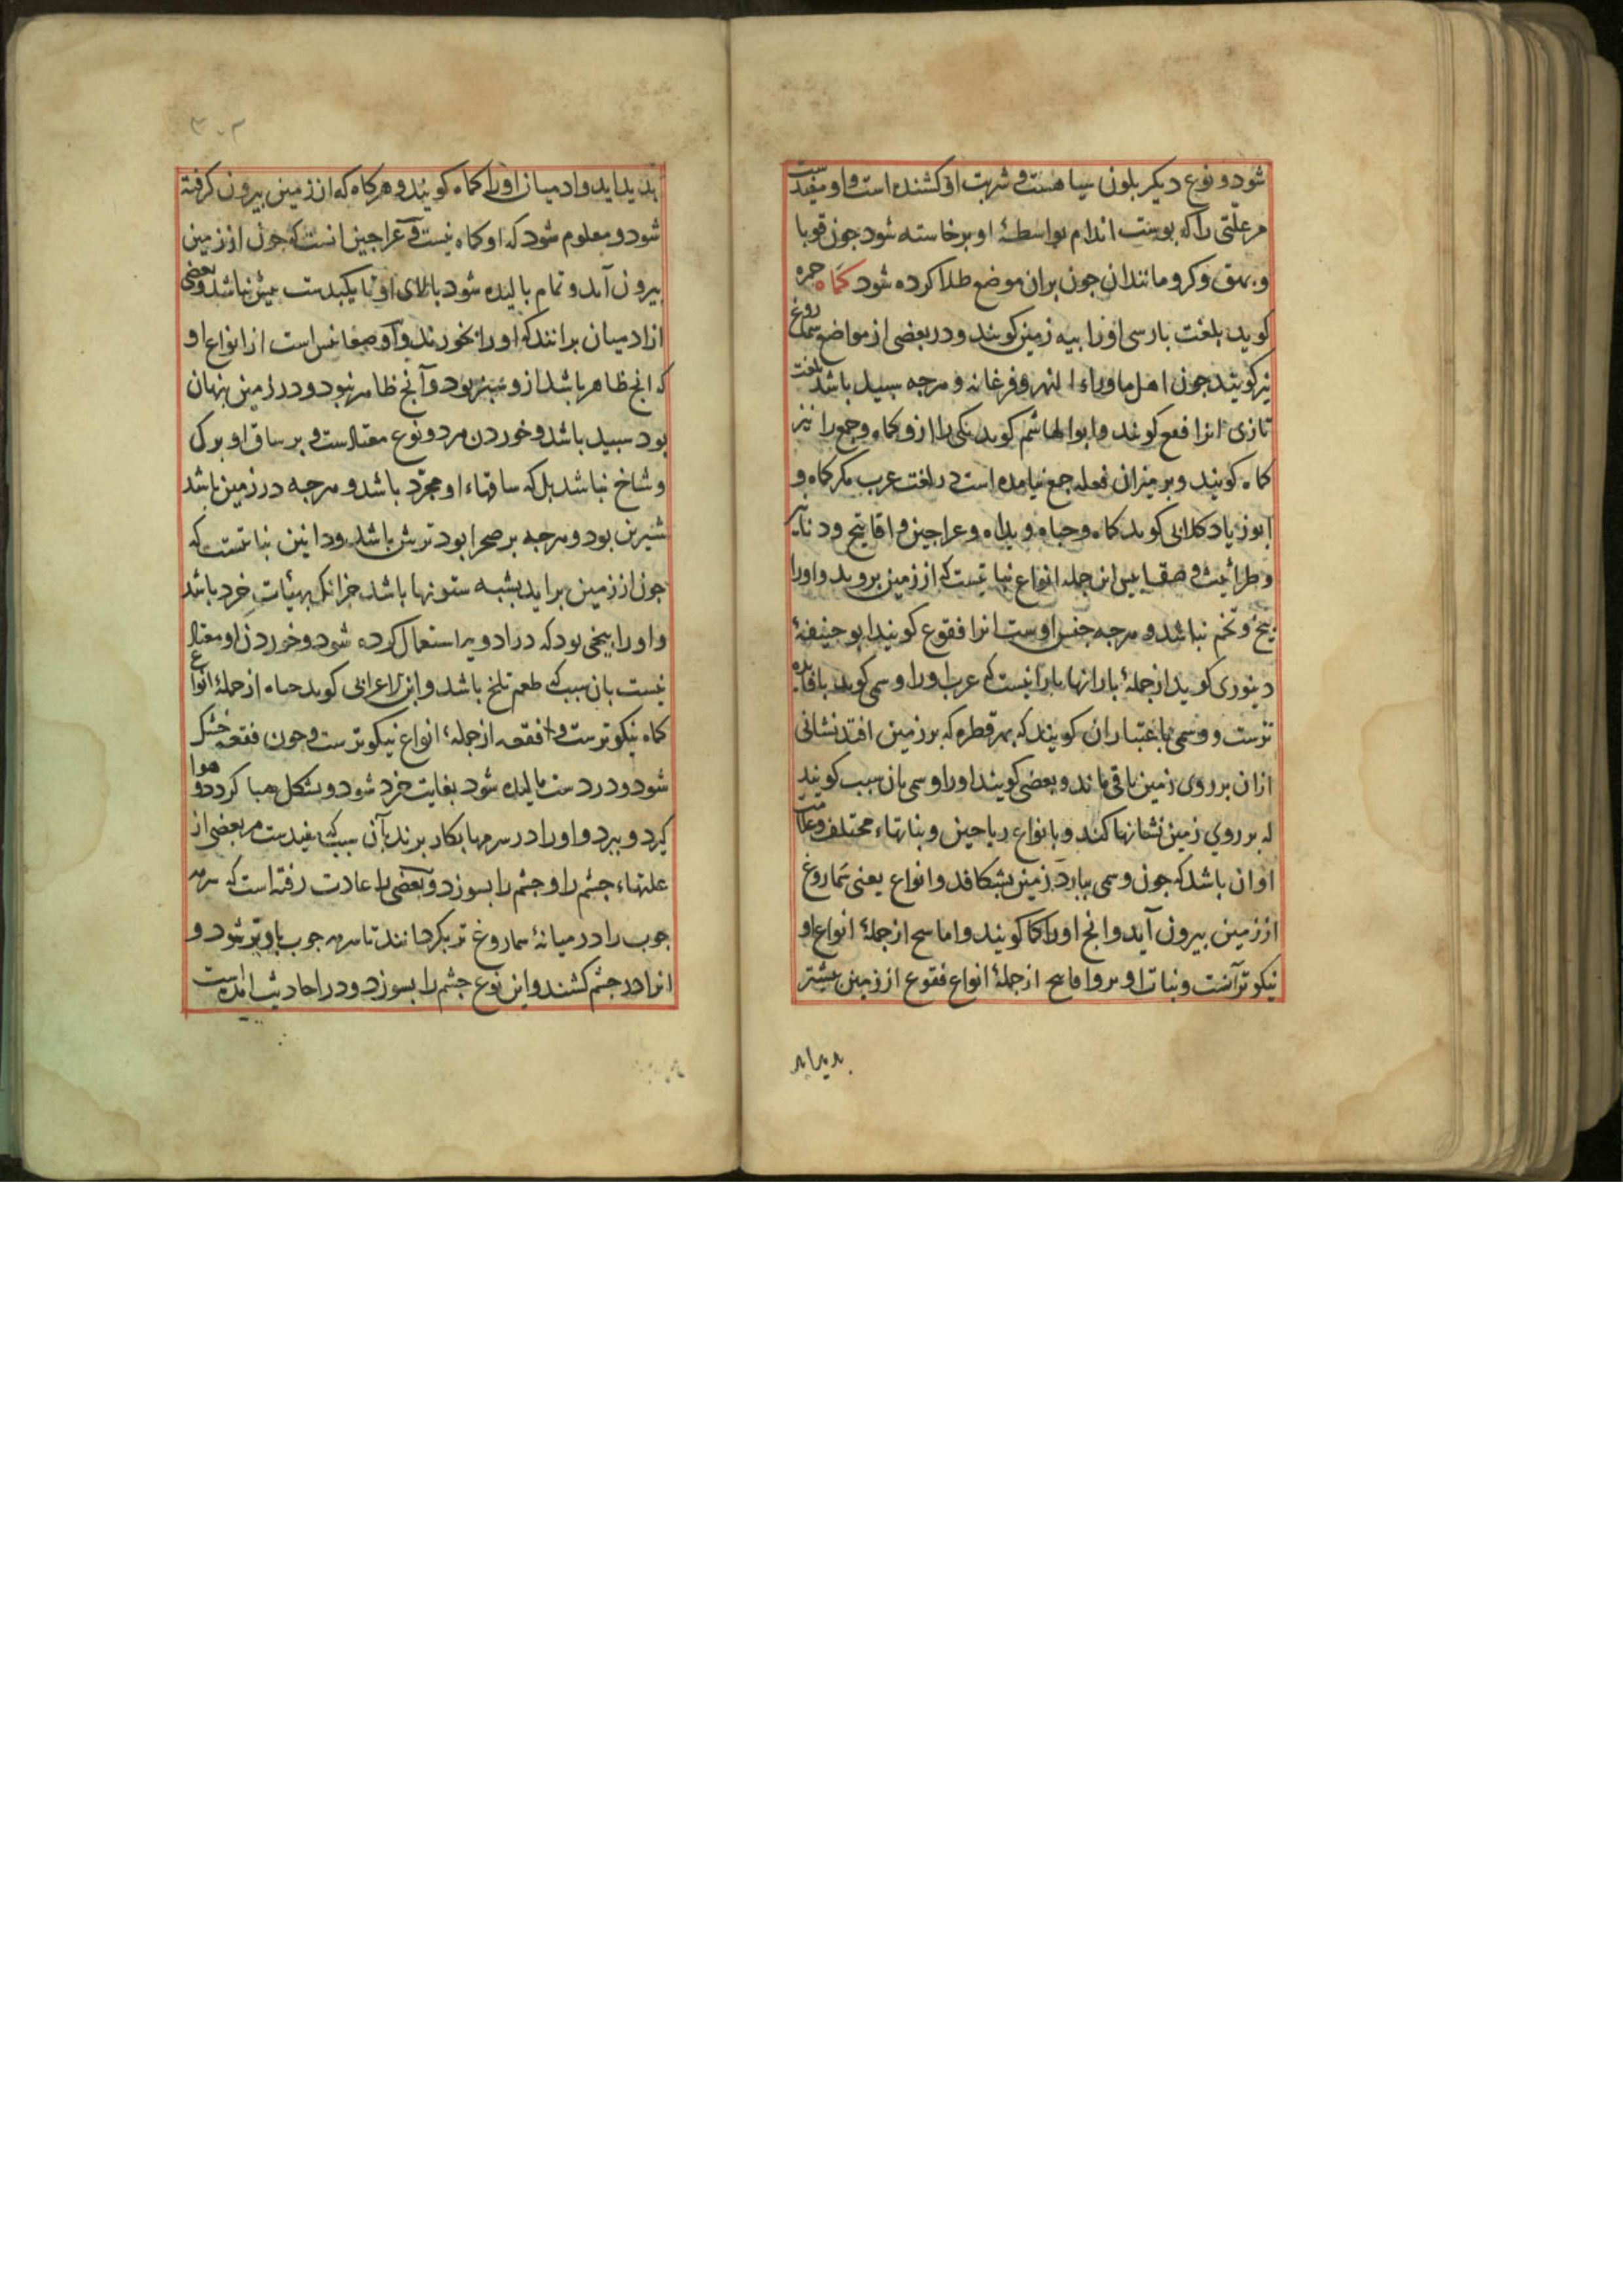 شود و نوع دیکر بلون سیاهست و شربت او کشنده است و او مفیدست
مر علّتی را که بوست اندام بواسطهٔ او برخاسته شود جون قوبا
و بهق و کر و مانندان جون بران موضع طلا کرده شود کماه حمزه
کوید بلغت بارسی اورا بیه زمین کویند و در بعضی از مواضع سماروغ
نیز کویند جون اهل ماوراء النهر و فرغانه و هرجه سبید باشد بلغت
تازی انرا فقع کویند و ابوالهاشم کوید یکی را ازو کماه و جمع را نیز
کماه کویند و بر میزان فعله جمع نیامده است در لغت عرب مکر کماه و
ابوزیاد کلابی کوید کماه و جباه و بداه و عراجین و افاتیح و
و طراثیث و ضغابیس این جمله انواع نباتیست که از زمین بروید و اورا
بیخ و تخم نباشد و هرجه جنس اوست انرا فقوع کویند ابوحنیفهٔ
دینوری کوید از جملهٔ بارانها بارانیست که عرب اورا وسمی کوید بافایده
ترست و وسمی باعتبار ان کویند که بهر قطره که بر زمین افتد نشانی
ازان بر روی زمین باقی ماند و بعضی کویند اورا وسمی بان سبب کویند
که بر روی زمین نشانها کند و بانواع ریاحین و نباتهاء مختلف و علامت
او ان باشد که جون وسمی ببارد زمین بشکافد و انواع یعنی سماروغ
از زمین بیرون آید و انج اورا کما کویند و اما از جملهٔ انواع او
نیکوتر آنست و نبات او بر و از جملهٔ انواع فقوع از زمین بیشتر
بدیداید
۳۰۲
بدیداید و ادمیان اورا کماه کویند و هرکاه که از زمین بیرون کرفته
شود و معلوم شود که او کماه نیست و عراجین انست که جون از زمین
بیرون آید و تمام بالیده شود بالای او تا یکبدست بیش نباشد و بعضی
از ادمیان برانند که اورا نخورند و ضغابیس است از انواع او
که انج ظاهر باشد ازو سبز بود و آنج ظاهر نبود و در زمین بنهان
بود سبید باشد و خوردن هر دو نوع معتادست و بر ساق او برک
و شاخ نباشد بل که ساقهاء او مجرّد باشد و هرجه در زمین باشد
شیرین بود و هرجه بر صحرا بود ترش باشد و نباتیست که
جون از زمین براید بشبه ستونها باشد جز انک بهیئات خرد باشد
و اورا بیخی بود که در ادویه استعمال کرده شود و خوردن او معتاد
نیست بان سبب که طعم تلخ باشد و ابن الاعرابی کوید جباه از جملهٔ انواع
کماه نیکوترست و فقعه از جملهٔ انواع نیکوترست و جون فقعه خشک
شود و در دست مالیده شود بغایت خرد شود و بشکل هبا کردد و هوا
کیرد و ببرد و اورا در سرمها بکار برند بآن سبب که مفیدست مر بعضی از
علتهاء جشم را و جشم را بسوزد و بعضی را عادت رفته است که سرمه
جوب را در میانهٔ سماروغ تر بکردانند تا سرمه جوب باو تر شود و
انرا در جشم کشند و این نوع جشم را بسوزد و در احادیث امده است